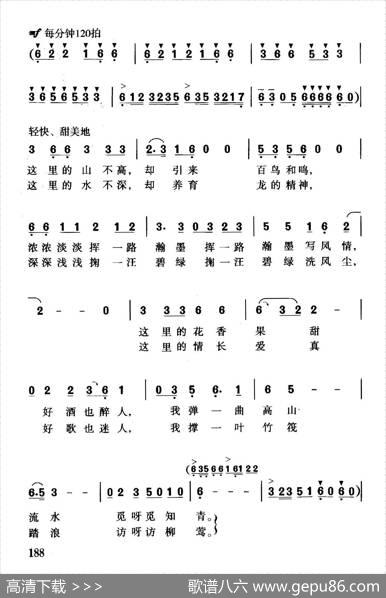 mf 每分钟120拍
(6 2 2 1 6 6 0 6 6 | 3 6 6 5 3 3
3 6 5 6 5 3 3 | 6 1 2 3 2 3 5 6 3 5 3 2 1 7 | 6 3 0 5 6 6 6 6 6 0)
轻快、甜美地
3 6 6 3 3 | 2·3 1 6 0 0 | 5 3 5 6 0 0
这里的山不高，却引来 百鸟和鸣，
这里的水不深，却养育 龙的精神，
6 6 1 1 2 1 2 | 3· 3 0 3 2 3 | 5 5 1 6 2
浓浓淡淡挥一路 瀚墨挥一路 瀚墨写风情，
深深浅浅掬一汪 碧绿掬一汪 碧绿洗风尘，
2 - - 0 | 3 3 3 6 6 | 6 3 2 2 - -
这里的花香果甜
这里的情长爱真
0 2 2 2 3 6 1 | 0 3 5 6· 1 | 6 5 - -
好酒也醉人， 我弹一曲高山
好歌也迷人， 我撑一叶竹筏
(6 3 5 6 6 1 6 1 2 2
6·5 3 - - | 0 2 3 5 0 1 0 | 6 - - - | 3 2 3 5 1 6 0 6 0)
流水 觅呀觅知青。
踏浪 访呀访柳莺。
188
高清下载 >>>
歌谱八六 www.gepu86.com